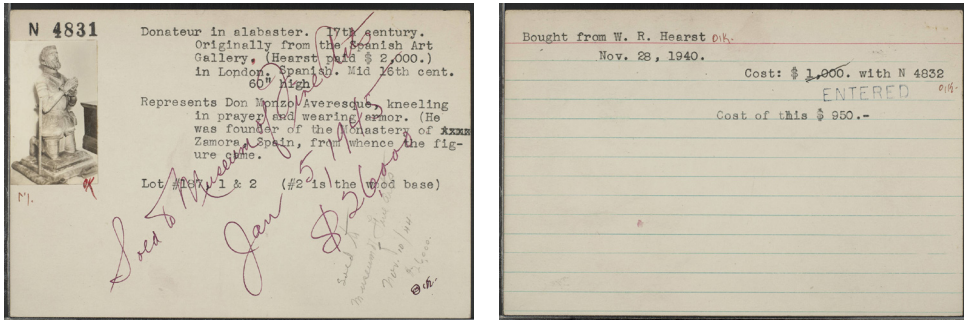 N 4831
Donateur in alabaster. 17th century.
Originally from the Spanish Art
Gallery. (Hearst paid $ 2,000.)
in London. Spanish. Mid 16th cent.
60" high
Represents Don Monzo Averesque, kneeling
in prayer and wearing armor. (He
was founder of the Monastery of xxxx
Zamora, Spain, from whence the fig-
ure came.
Lot #187, 1 & 2 (#2 is the wood base)
Sold to Museum of Fine Arts
Jan 5/1945
$26,000
Sold to
Museum of Fine Arts
Nov. 10/44
O.K.
Bought from W. R. Hearst O.K.
Nov. 28, 1940.
Cost: $ 1,900. with N 4832
O.K.
ENTERED
Cost of this $ 950.-